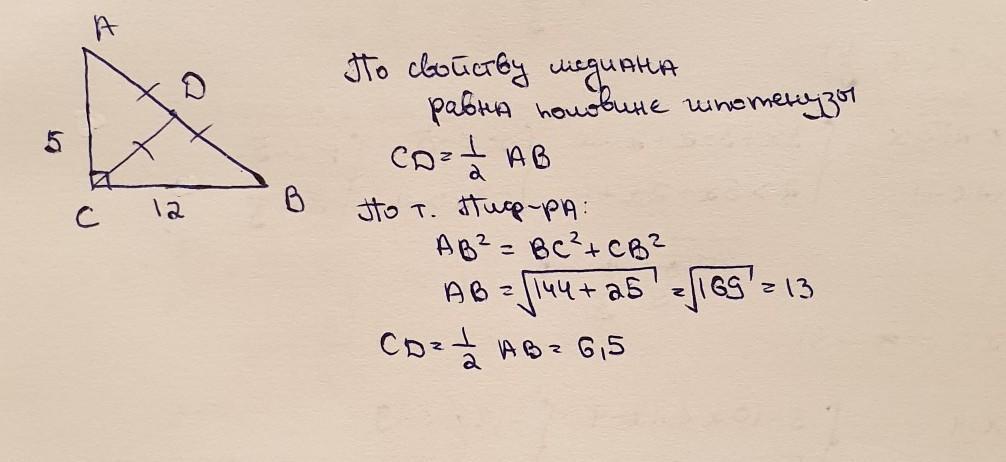 A
D
5
C
12
B
По свойству медиана
равна половине гипотенузы
CD = 1/2 AB
По т. Пиф-ра:
AB² = BC² + CB²
AB = √144 + 25 = √169 = 13
CD = 1/2 AB = 6,5